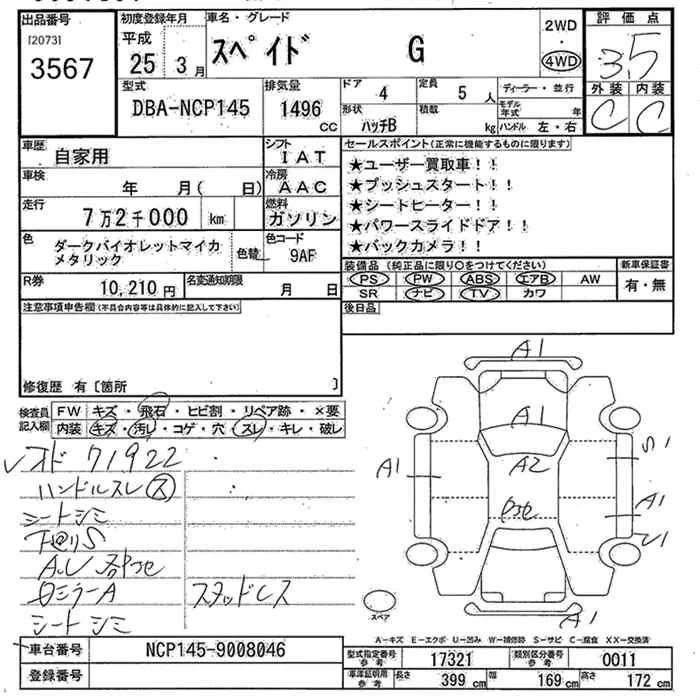 出品番号 初度登録年月 車名・グレード 2WD 評価点
[2073] 平成 スペイド G ・ 3.5
3567 25 3月 4WD
型式 排気量 ドア 4 定員 5人 ディーラー・並行 外装 内装
DBA-NCP145 1496 CC 形状 ハッチB 積載 kg モデル年式 年 C C
ハンドル 左・右
車歴 自家用 シフト IAT セールスポイント(正常に機能するものに限ります)
車検 年 月( 日) 冷房 AAC ★ユーザー買取車!!
走行 7万2千000 km 燃料 ガソリン ★プッシュスタート!!
★シートヒーター!!
★パワースライドドア!!
★バックカメラ!!
色 ダークバイオレットマイカメタリック 色替 色コード 9AF
装備品(純正品に限り○をつけてください) 新車保証書
PS PW ABS エアB AW 有・無
SR ナビ TV カワ
R券 10,210円 名変通知期限 月 日 後日品
注意事項申告欄(不具合内容等は具体的に記入して下さい)
修復歴 有〔箇所 〕
検査員記入欄 FW キズ・飛石・ヒビ割・リペア跡・×要
内装 キズ・汚レ・コゲ・穴・スレ・キレ・破レ
オド 71922
ハンドルスレ ス
シートシミ
シートシミ
スタッドレス
A1
A1
A2
A1
A1
A1
スペア
A−キズ E−エクボ U−凹み W−補修跡 S−サビ C−腐食 XX−交換済
車台番号 NCP145-9008046 型式指定番号 参考 17321 類別区分番号 参考 0011
登録番号 車庫証明用 参考 長さ 399 cm 幅 169 cm 高さ 172 cm